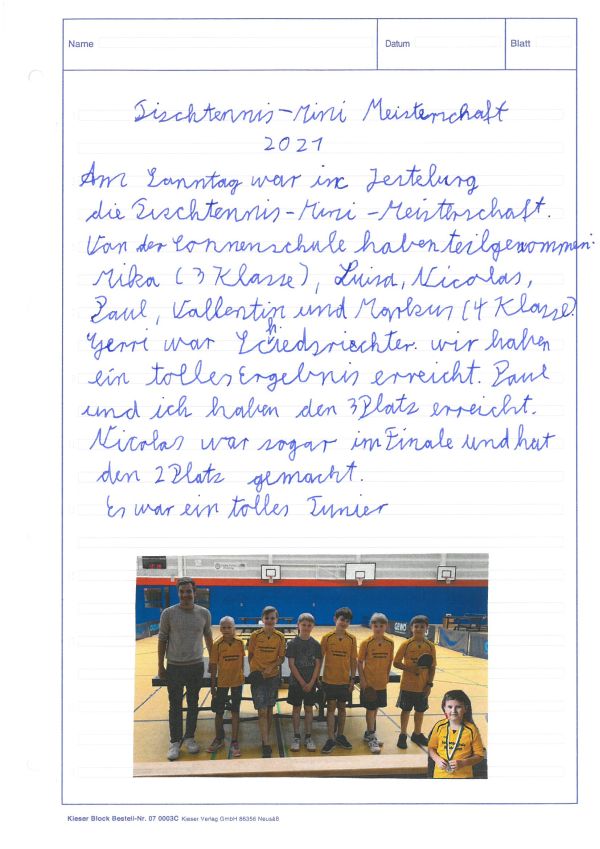 Name
Datum
Blatt
Tischtennis-Mini Meisterschaft
2021
Am Sonntag war in Jesteburg
die Tischtennis-Mini-Meisterschaft.
Von der Sonnenschule haben teilgenommen:
Mika (3 Klasse), Luisa, Nicolas,
Paul, Vallentin und Markus (4 Klasse).
Gerri war Schiedsrichter. wir haben
ein tolles Ergebnis erreicht. Paul
und ich haben den 3 Platz erreicht.
Nicolas war sogar im Finale und hat
den 2 Platz gemacht.
Es war ein tolles Tunier
GEWO
Kieser Block Bestell-Nr. 07 0003C Kieser Verlag GmbH 86356 Neusäß